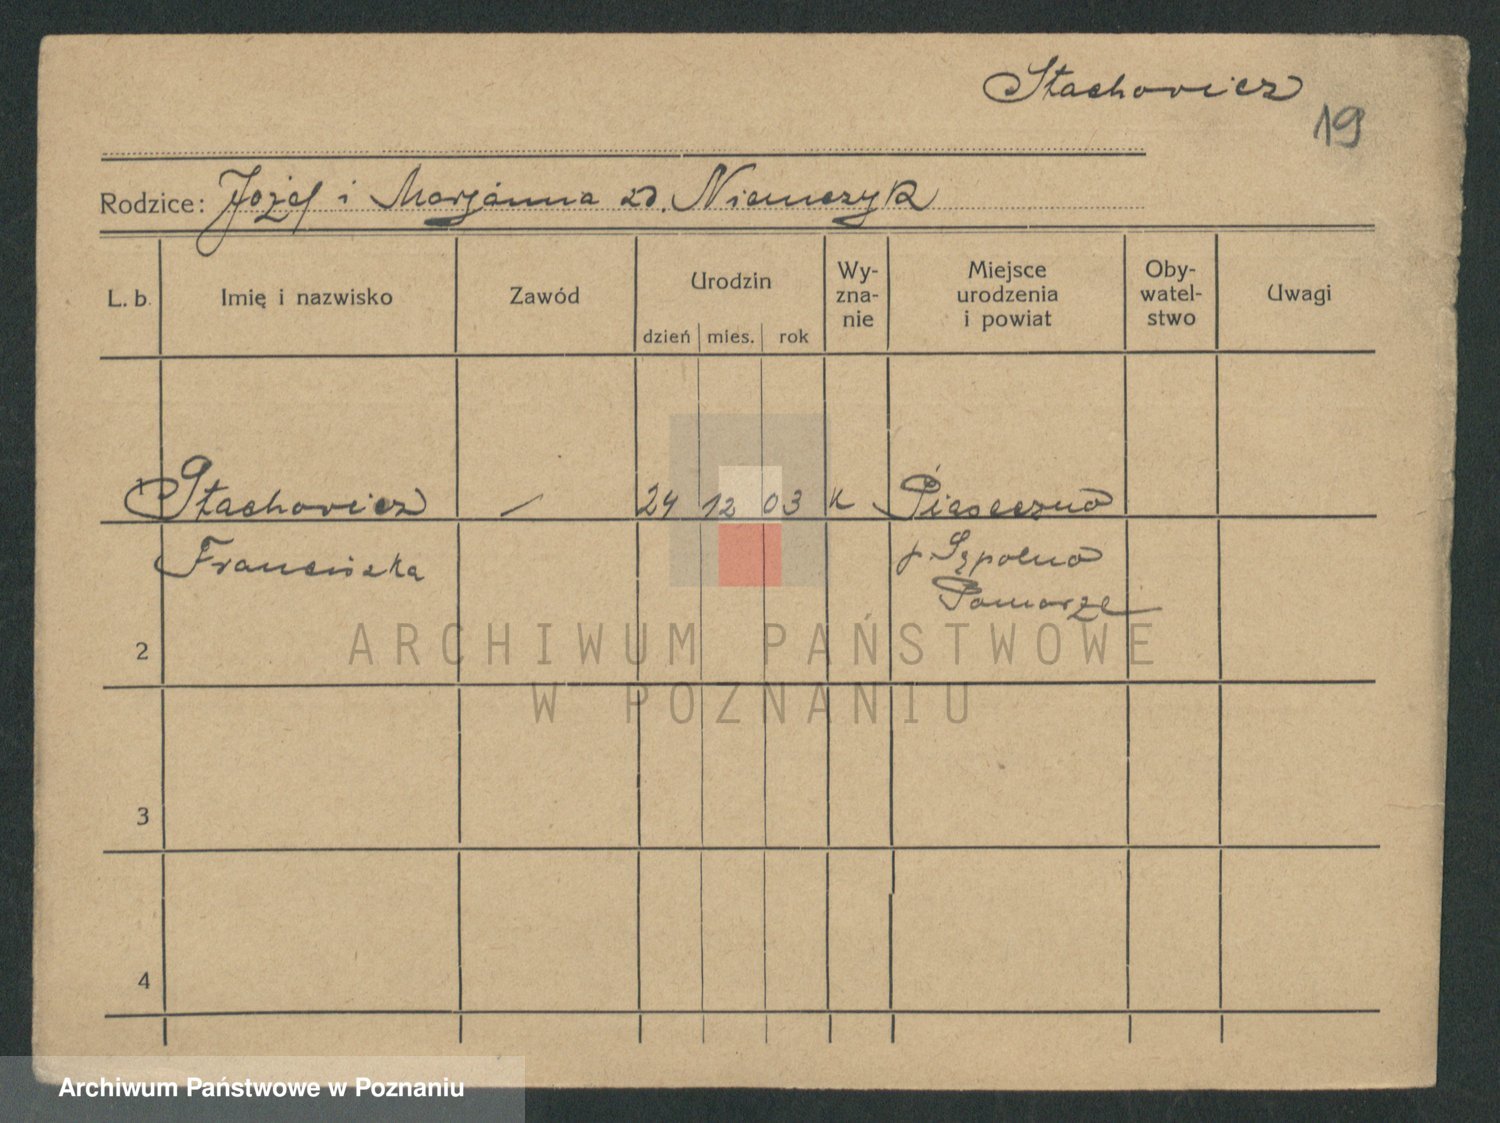 Stachowicz
19
Rodzice: Józef i Marjanna zd. Niemczyk
L. b. Imię i nazwisko Zawód Urodzin dzień mies. rok Wy-zna-nie Miejsce urodzenia i powiat Oby-watel-stwo Uwagi
1 Stachowicz — 24 12 03 k Piaseczno
Franciszka p. Sępolno
Pomorze
2
ARCHIWUM PAŃSTWOWE
W POZNANIU
3
4
Archiwum Państwowe w Poznaniu